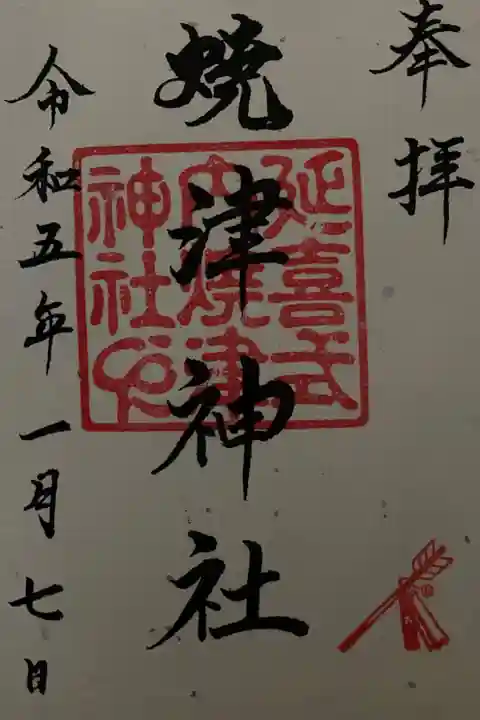 奉拝
焼津神社
延喜式
内焼津
神社
令和五年一月七日